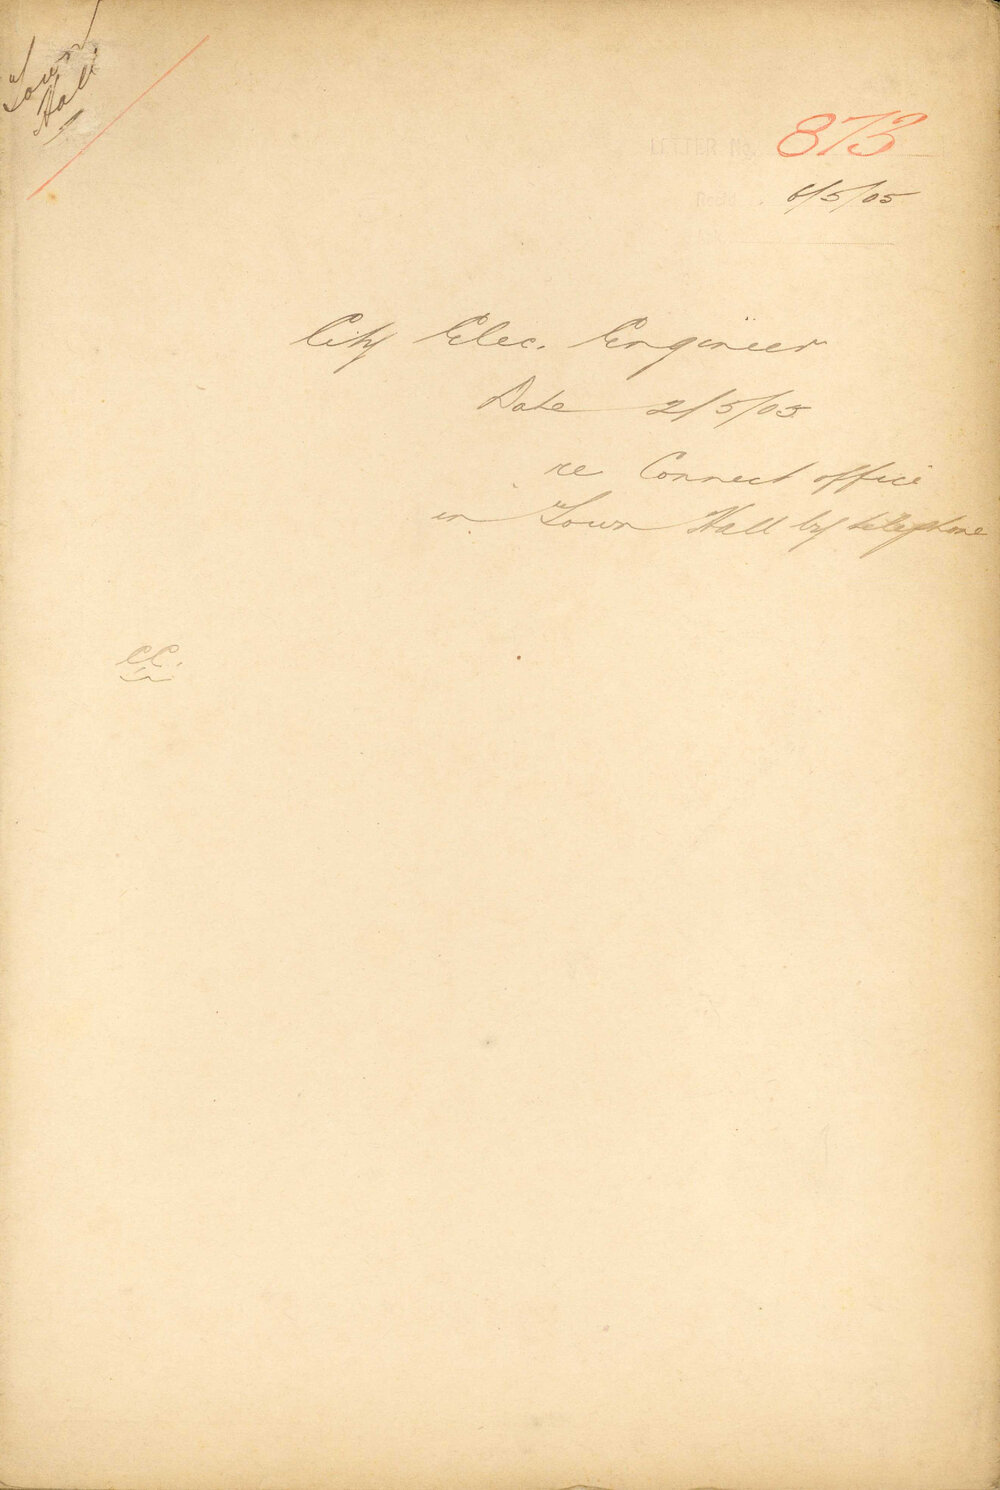 Town
Hall
873
6/5/05
City Elec. Engineer
Date 2/5/05
re Connect office
in Town Hall by telephone
CC.